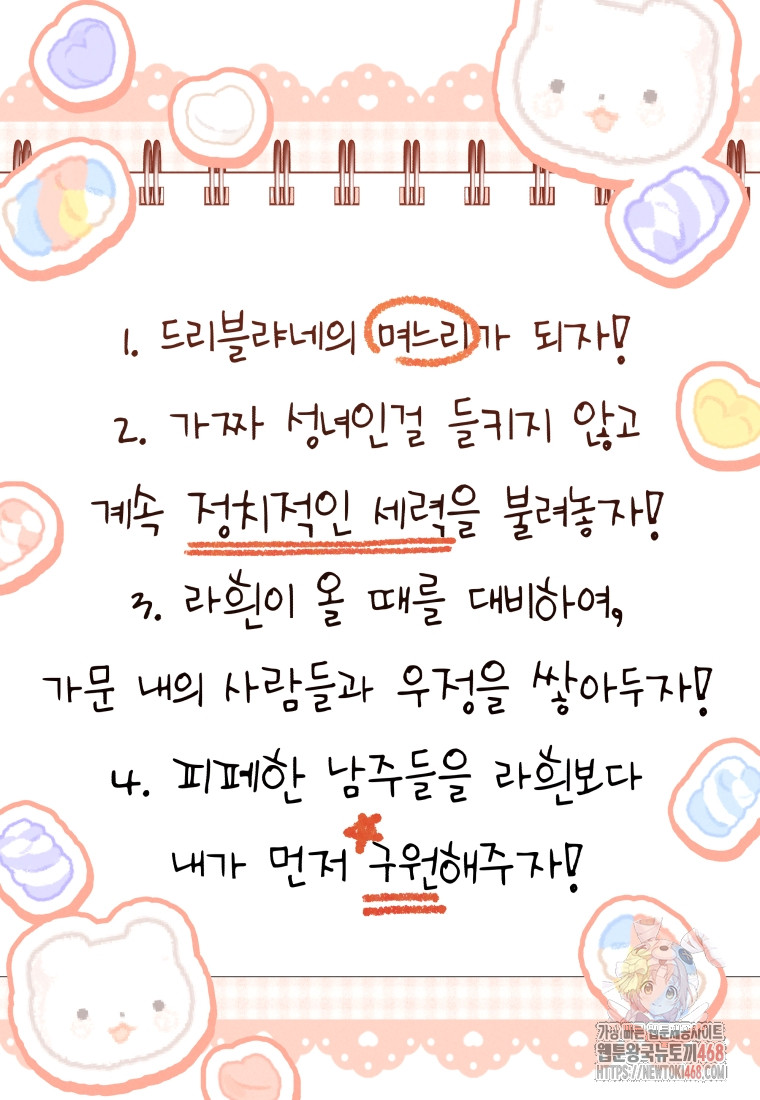 1. 드리블랴네의 며느리가 되자!
2. 가짜 성녀인걸 들키지 않고
계속 정치적인 세력을 불려놓자!
3. 라흰이 올 때를 대비하여,
가문 내의 사람들과 우정을 쌓아두자!
4. 피폐한 남주들을 라흰보다
내가 먼저 구원해주자!
가장 빠른 웹툰제공사이트
웹툰왕국뉴토끼468
HTTPS://NEWTOKI468.COM